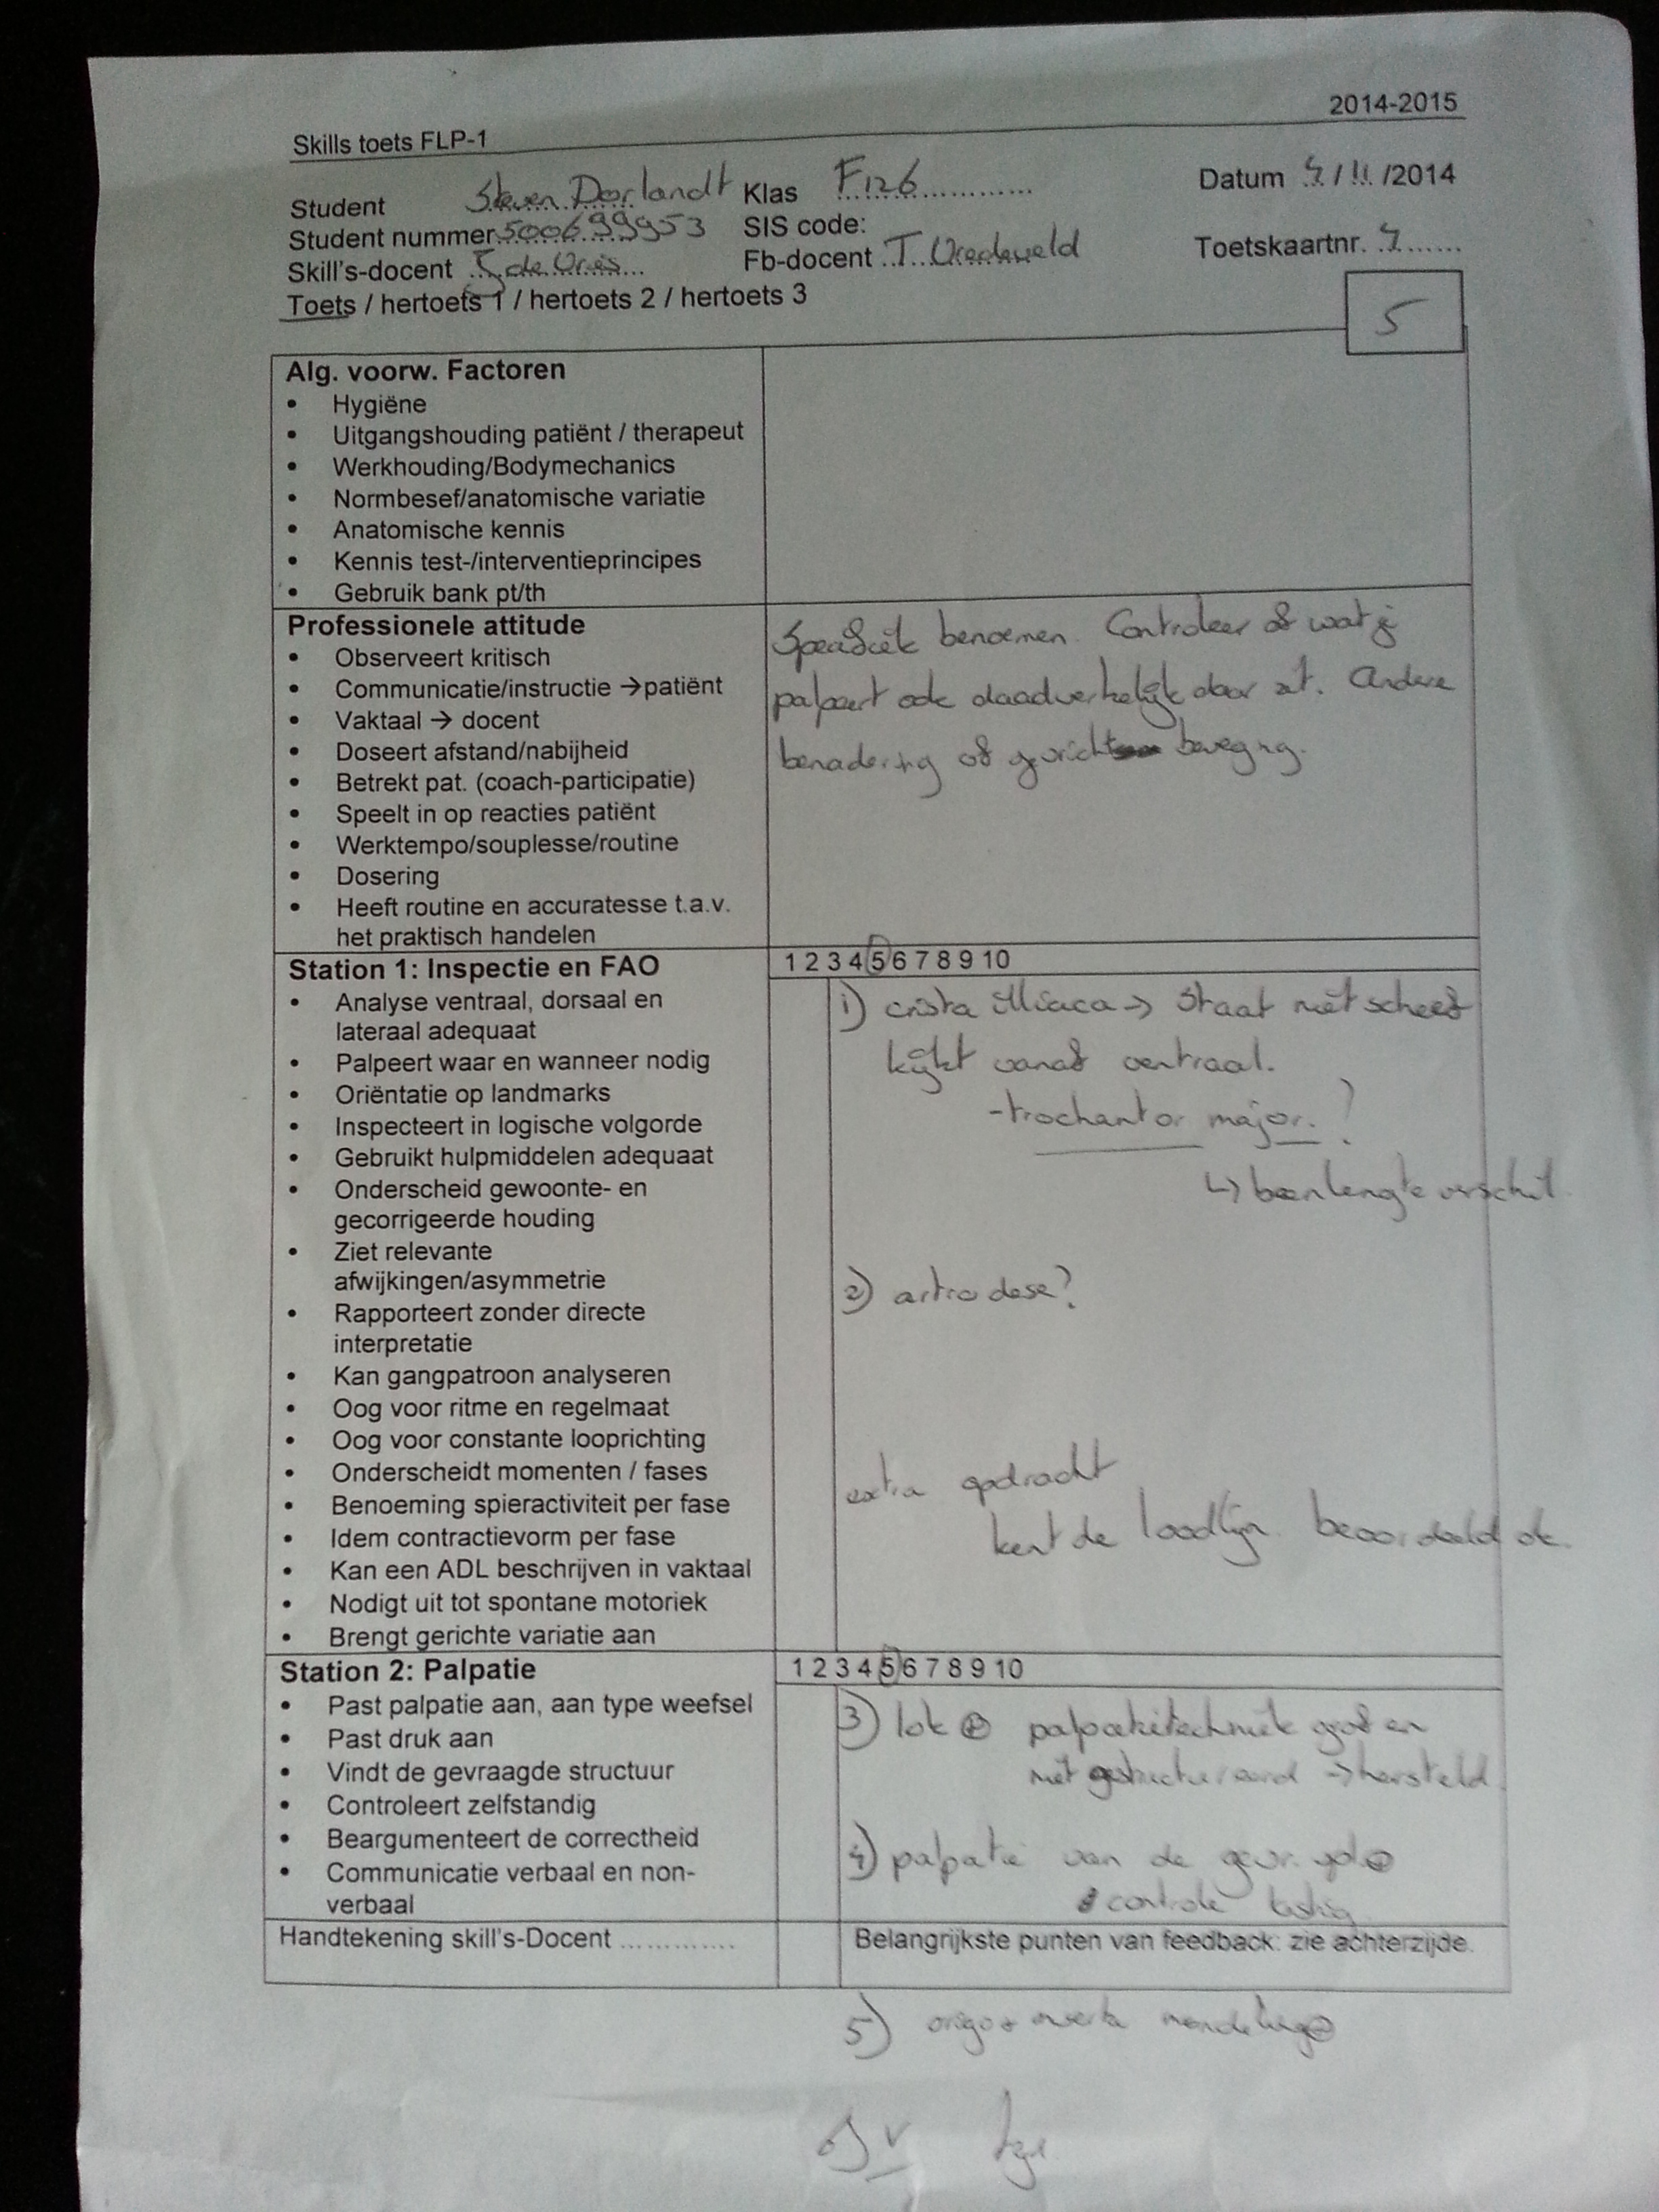 2014-2015
Skills toets FLP-1
Student Steven Dorlandt Klas F126 Datum 4 / 11 /2014
Student nummer 500699953 SIS code:
Skill's-docent de Vries Fb-docent T. Vredeveld Toetskaartnr. 4
Toets / hertoets 1 / hertoets 2 / hertoets 3
5
Alg. voorw. Factoren
• Hygiëne
• Uitgangshouding patiënt / therapeut
• Werkhouding/Bodymechanics
• Normbesef/anatomische variatie
• Anatomische kennis
• Kennis test-/interventieprincipes
• Gebruik bank pt/th
Professionele attitude
• Observeert kritisch
• Communicatie/instructie →patiënt
• Vaktaal → docent
• Doseert afstand/nabijheid
• Betrekt pat. (coach-participatie)
• Speelt in op reacties patiënt
• Werktempo/souplesse/routine
• Dosering
• Heeft routine en accuratesse t.a.v.
het praktisch handelen
Specifiek benoemen. Controleer of wat je
palpeert ook daadwerkelijk daar zit. Andere
benadering of gewricht beweging.
Station 1: Inspectie en FAO
1 2 3 4 5 6 7 8 9 10
• Analyse ventraal, dorsaal en
lateraal adequaat
• Palpeert waar en wanneer nodig
• Oriëntatie op landmarks
• Inspecteert in logische volgorde
• Gebruikt hulpmiddelen adequaat
• Onderscheid gewoonte- en
gecorrigeerde houding
• Ziet relevante
afwijkingen/asymmetrie
• Rapporteert zonder directe
interpretatie
• Kan gangpatroon analyseren
• Oog voor ritme en regelmaat
• Oog voor constante looprichting
• Onderscheidt momenten / fases
• Benoeming spieractiviteit per fase
• Idem contractievorm per fase
• Kan een ADL beschrijven in vaktaal
• Nodigt uit tot spontane motoriek
• Brengt gerichte variatie aan
1) crista illiaca → staat niet scheef
kijkt vanaf ventraal.
- trochantor major. ?
↳ beenlengte verschil
2) artrodese?
extra opdracht
kent de loodlijn. beoordeeld ok.
Station 2: Palpatie
1 2 3 4 5 6 7 8 9 10
• Past palpatie aan, aan type weefsel
• Past druk aan
• Vindt de gevraagde structuur
• Controleert zelfstandig
• Beargumenteert de correctheid
• Communicatie verbaal en non-
verbaal
3) lok ⊕ palpatietechniek grof en
niet gestructureerd → hersteld
4) palpatie van de gewr.
controle lastig
Handtekening skill's-Docent .............
Belangrijkste punten van feedback: zie achterzijde.
5) origo + insertie